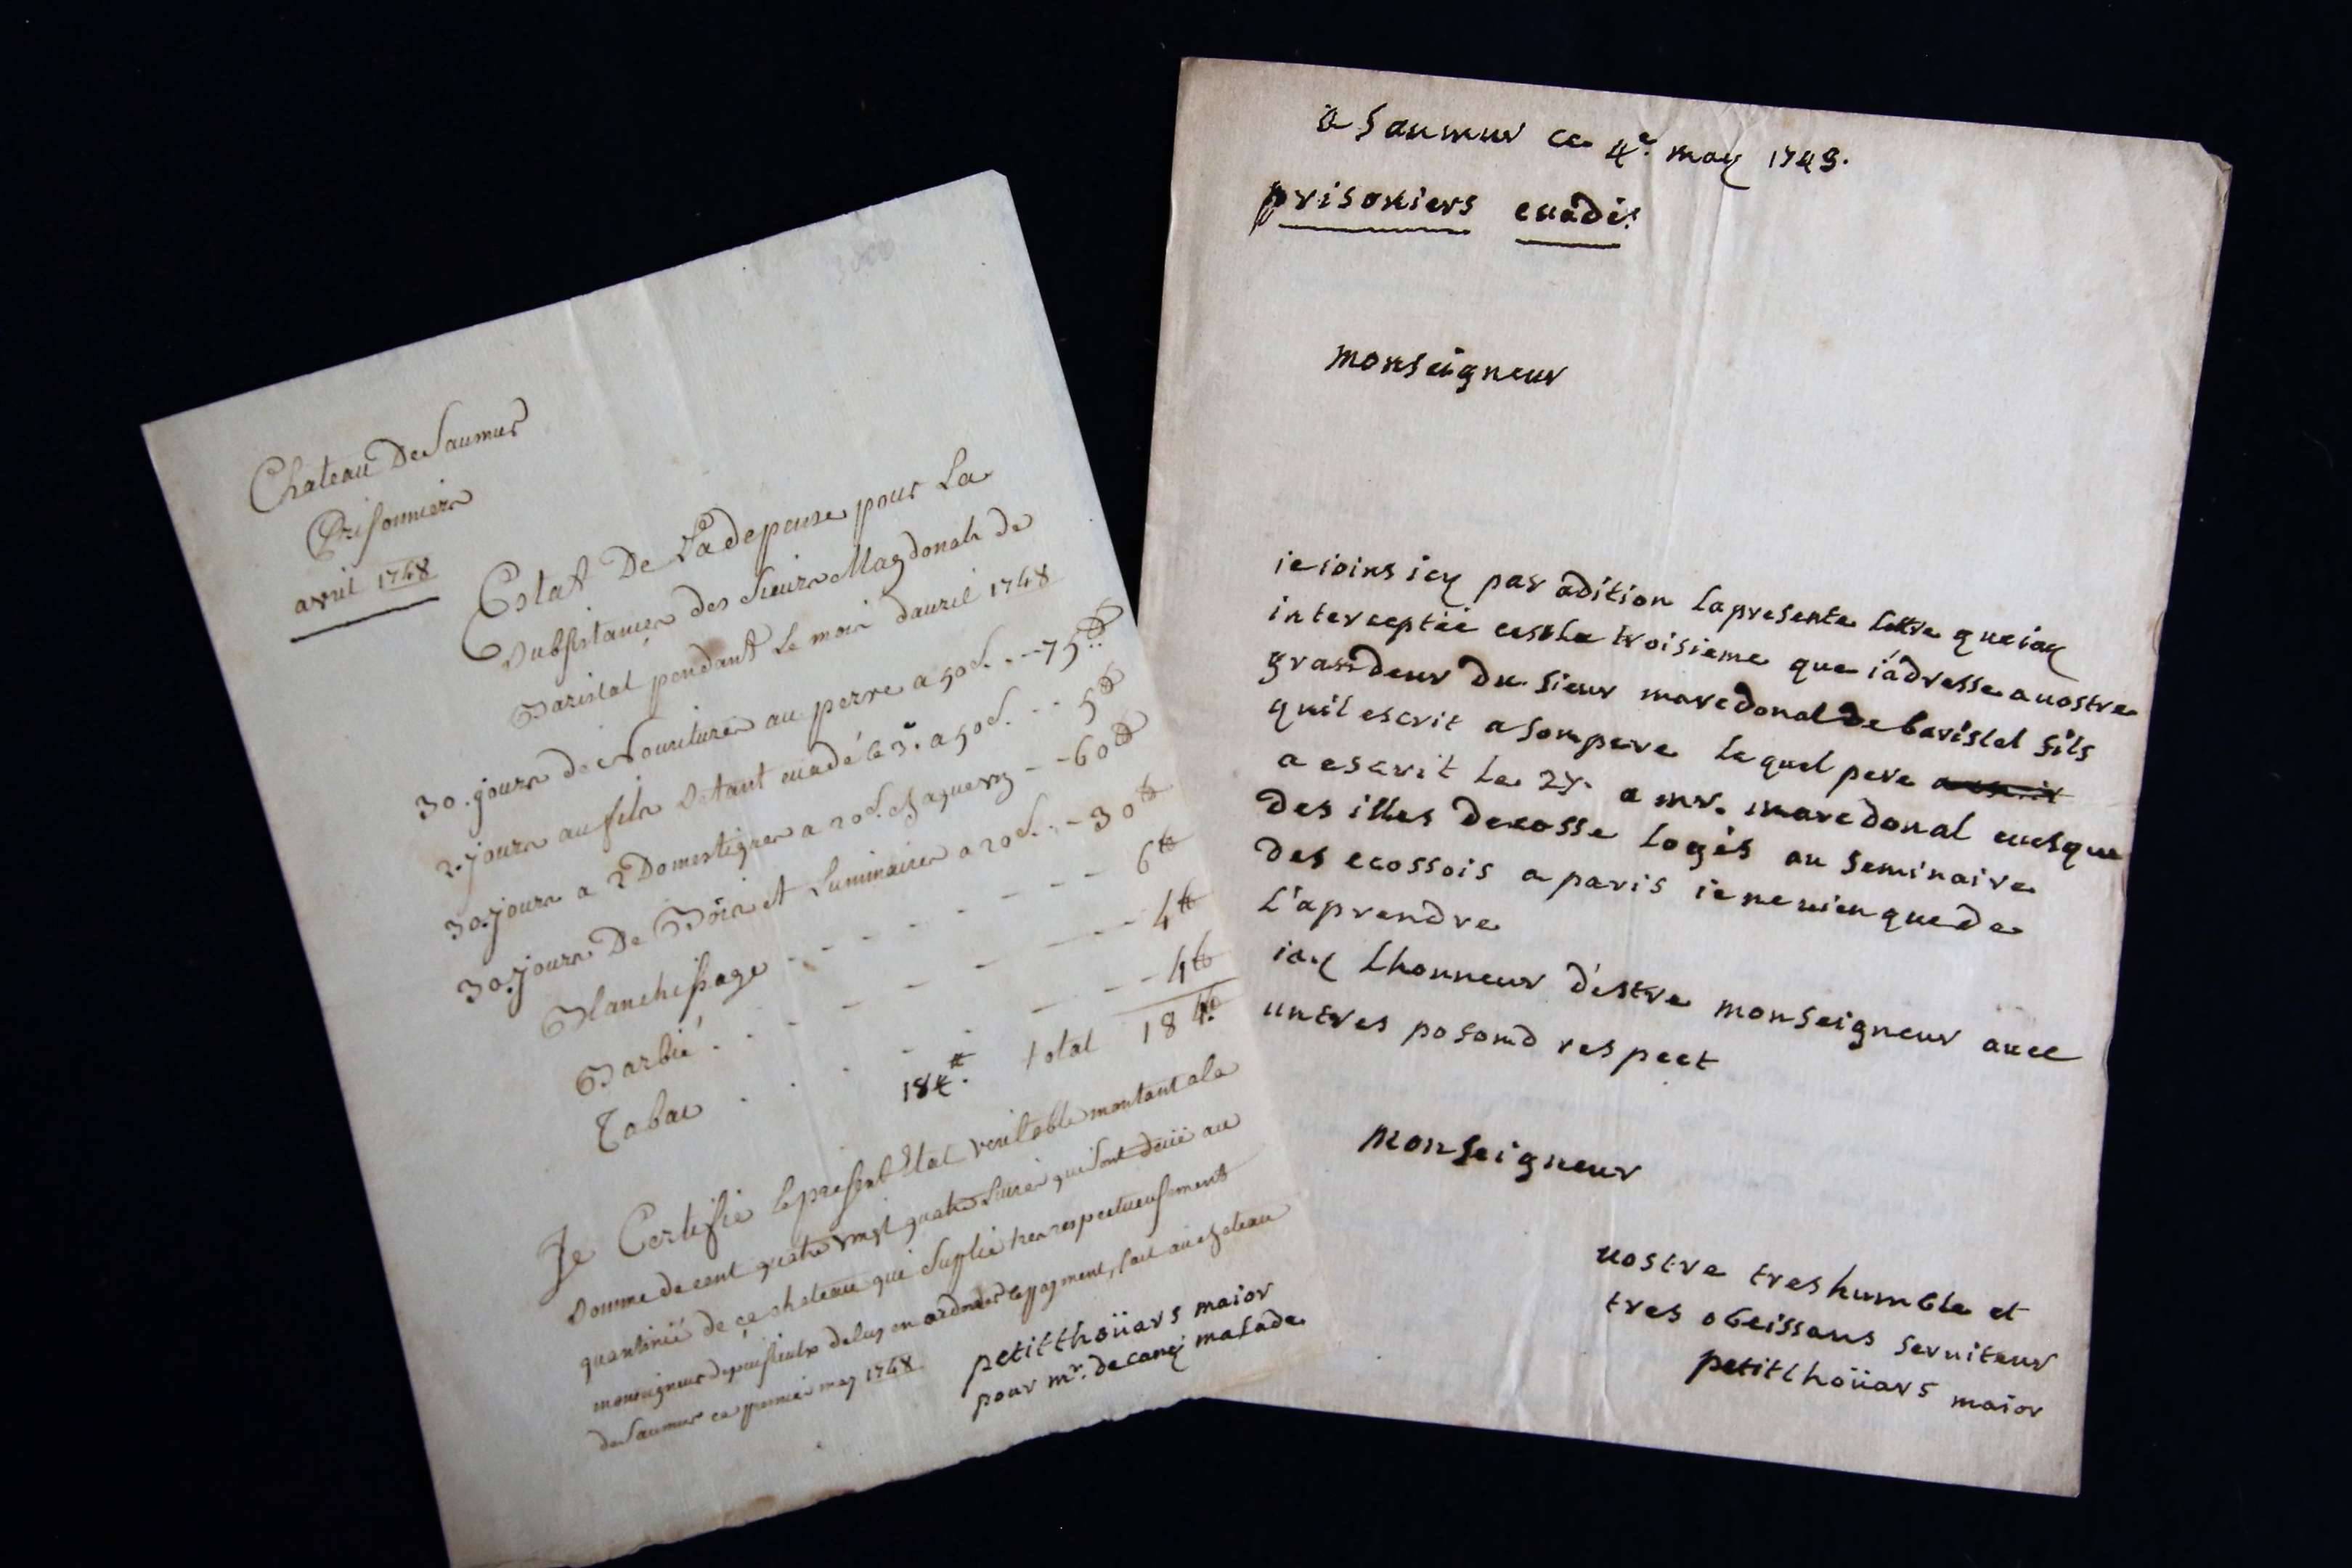 Chateau De Saumur
Prisonniers
avril 1748
Estat De La depense pour La
Subsistance des Sieurs Magdonals de
Barislal pendant Le mois d'auril 1748
30. jours de Nouriture au perre a 50s. - - 75tt
2. jours au fils Setant euadé le 3e. a 50s. - - 5tt
30. jours a 2 Domestiques a 20s. Chaquevn - - 60tt
30. jours De Bois et Luminaire a 20s. - - 30tt
Blanchissage - - - - - - 6tt
Barbié - - - - - - 4tt
Tabac - - - - - - 4tt
184tt. total 184tt
Je Certifie le present Etat veritable montant a la
Somme de cent quatre vingt quatre Liures qui sont deüe au
quantinié de ce chateau qui Suplie tres respectueusement
monseigneur
de Saumur ce premier may 1748
petitthoüars maior
pour mr. de cary malade
a Saumur ce 4e. may 1749.
prisoniers euadés
monseigneur
ie ioins icy par adition la presente lettre que iay
interceptée cest la troisieme que i'adresse a uostre
grandeur du sieur marcdonal de barislel fils
quil escrit a son pere le quel pere a escrit
a escrit le 27. a mr. marcdonal euesque
des illes decosse logés au seminaire
des ecossois a paris ie ne uien que de
l'aprendre
iay l'honneur d'estre monseigneur auec
un tres pofond respect
monseigneur
uostre tres humble et
tres obeissans seruiteur
petitthoüars maior